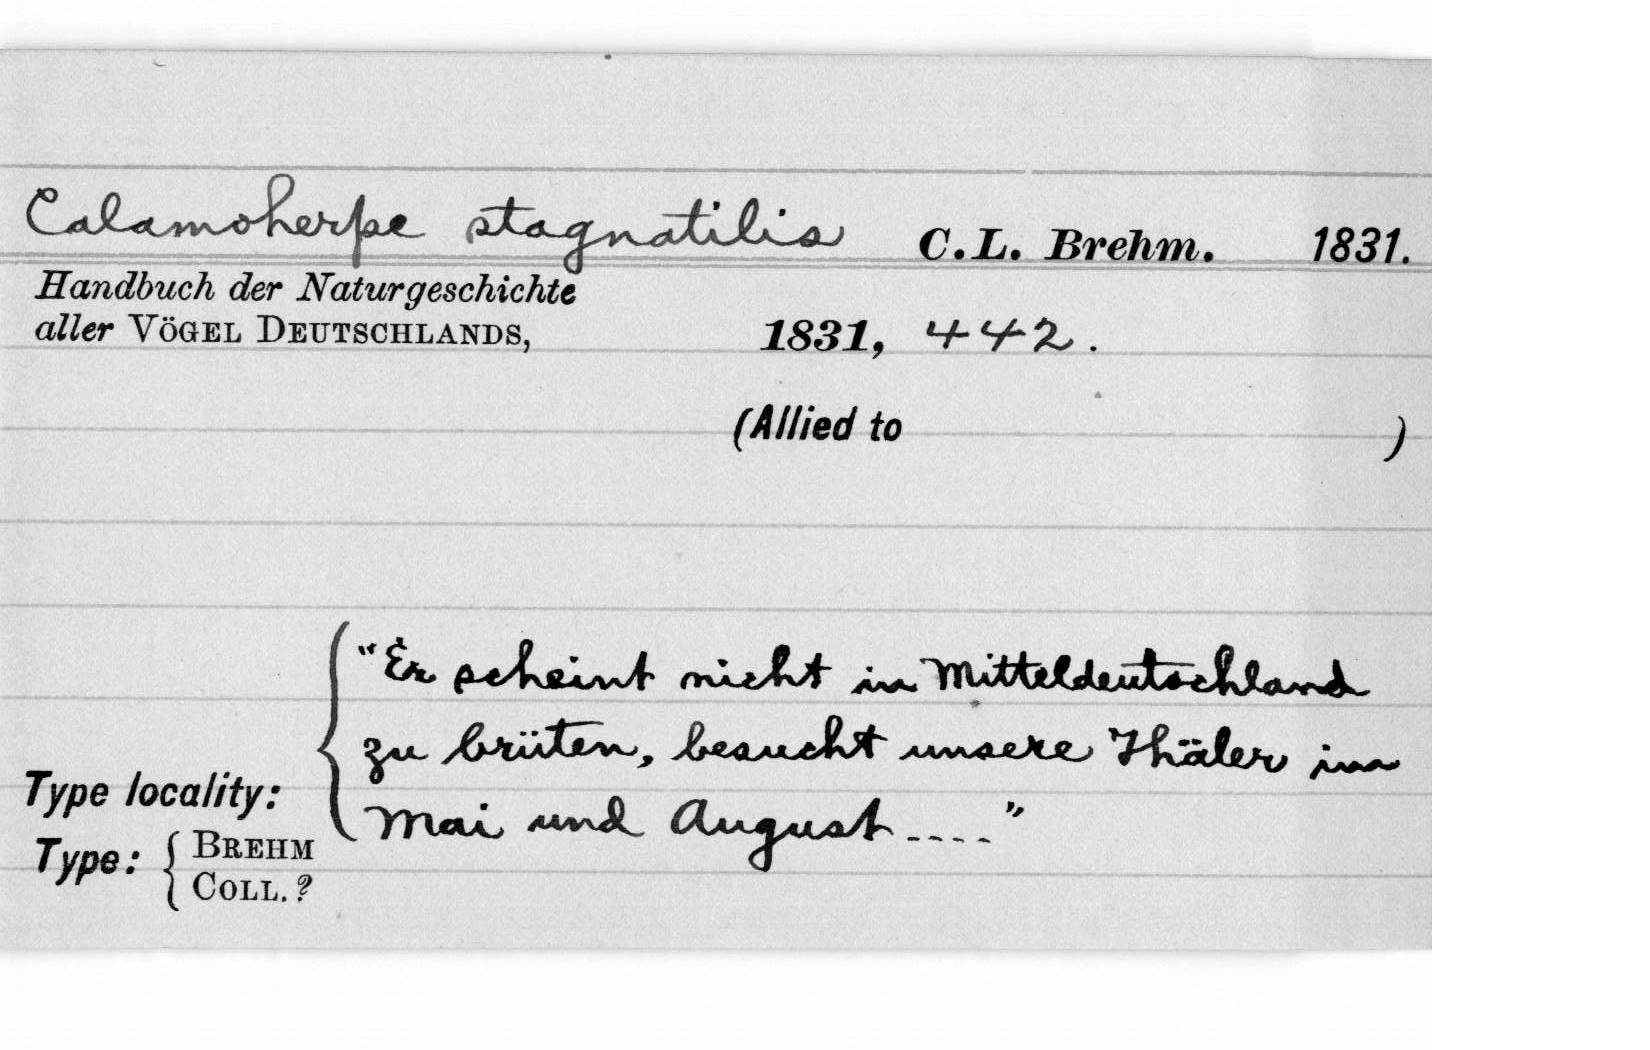 Calamoherpe stagnatilis C.L. Brehm. 1831.
Handbuch der Naturgeschichte
aller VÖGEL DEUTSCHLANDS, 1831, 442.
(Allied to )
"Er scheint nicht in Mitteldeutschland
zu brüten, besucht unsere Thäler im
Type locality:
Mai und August ----"
Type: { BREHM
COLL. ?